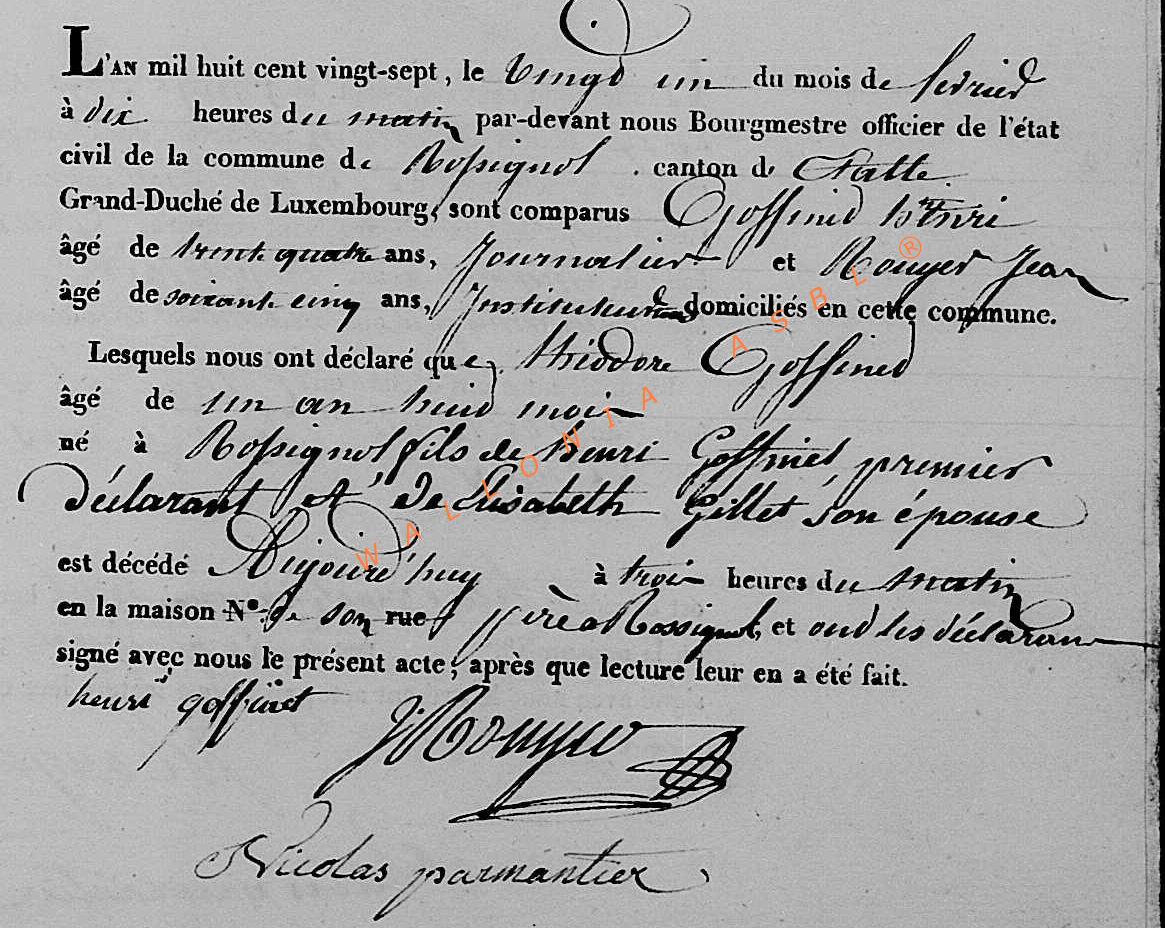 L'AN mil huit cent vingt-sept, le vingt un du mois de fevrier
à dix heures du matin par-devant nous Bourgmestre officier de l'état
civil de la commune de Rossignol canton d' Etalle
Grand-Duché de Luxembourg, sont comparus Goffinet henri
âgé de trent quatre ans, Journalier et Rouyer Jean
âgé de soixante cinq ans, Instituteur domiciliés en cette commune.
Lesquels nous ont déclaré que théodore Goffinet
âgé de un an huit mois
né à Rossignol fils de henri Goffinet premier
déclarant et de Elisabeth Gillet son épouse
est décédé Aujourd'huy à trois heures du matin
en la maison N°. de son rue père a Rossignol, et ont les déclarans
signé avec nous le présent acte, après que lecture leur en a été fait.
henri goffinet
J Rouyer
Nicolas parmantier
WALLONIA ASBL ®